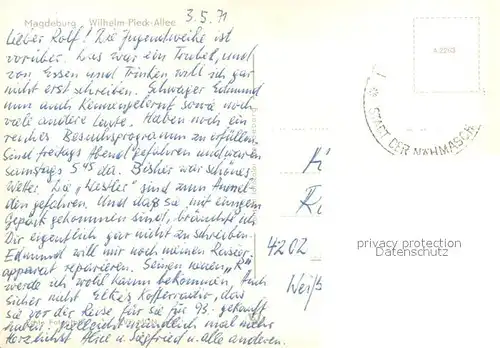 Magdeburg Wilhelm-Pieck-Allee
3.5.71
Lieber Rolf! Die Jugendweihe ist
vorüber. Das war ein Trubel, und
von Essen und Trinken will ich gar
nicht erst schreiben. Schwager Edmund
nun auch kennengelernt sowie noch
viele andere Leute. Haben noch ein
reiches Besuchsprogramm zu erfüllen.
Sind freitags Abend gefahren und waren
samstags 5 45 da. Bisher war schönes
Wetter. Die „Westler" sind zum
den gefahren. Und daß sie mit einigem
Gepäck gekommen sind, bräuchte ich
Dir eigentlich gar nicht zu schreiben.
Edmund will mir noch meinen Rasier-
apparat reparieren. Seinen neuen
werde ich wohl kaum bekommen. Auch
sicher nicht Elkes Kofferradio, das
sie vor der Reise für sie für 93.- gekauft
haben. Vielleicht mündlich mal mehr
Herzlichst Alice u. Siegfried u. alle anderen.
A 2203
STADT DER NÄHMASCH
4202
Weiß
privacy protection
Ansichtskarten-Center